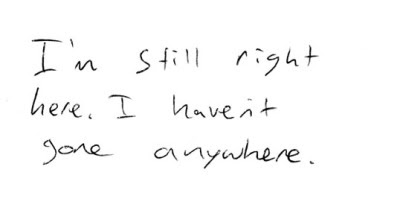 I'm still right
here. I haven't
gone anywhere.